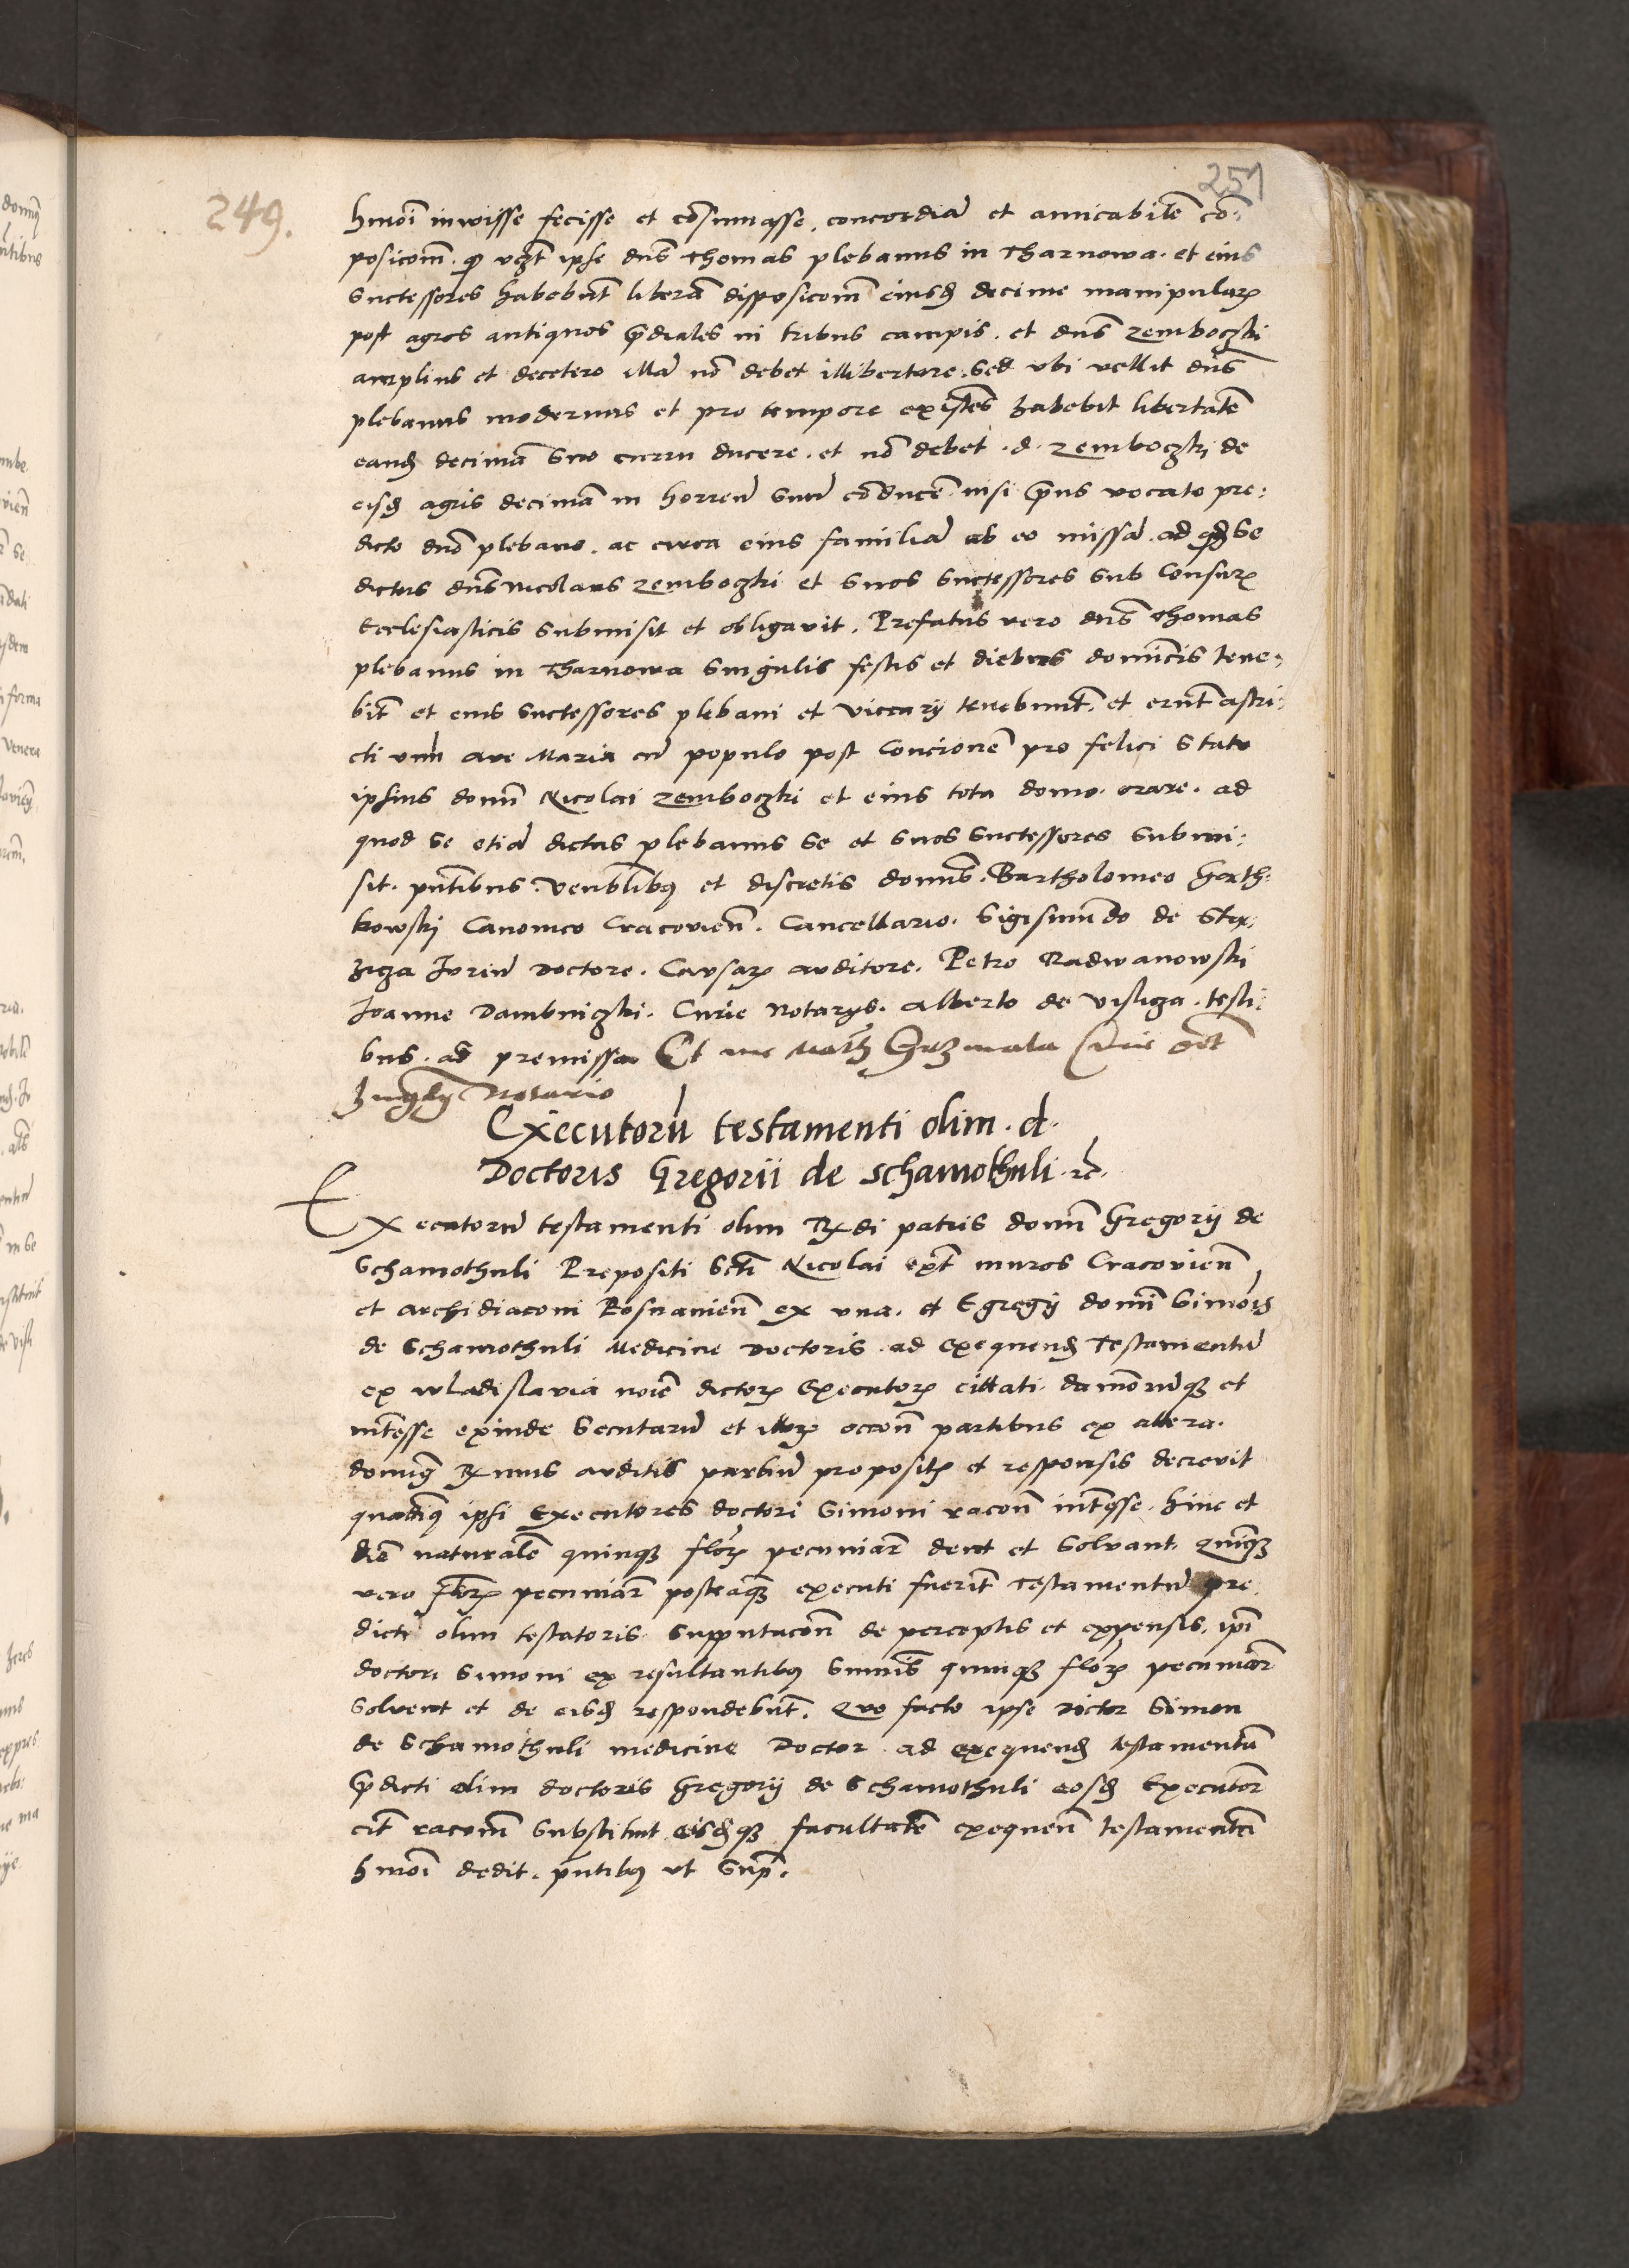 249.
251
hmoi iniuisse fecisse et cōsumasse, concordiā et amicabilē cō-
posicōm. q vzt ipse dns Thomas plebanus in Tharnowa. et eius
successores habebūt liberā disposicōm eiusd decime manipular
post agros antiquos p̄diales in tribus campis. et dns Zemboczki
amplius et decetero illā nō debet illibertare. sed vbi vellit dns
plebanus modernus et pro tempore existēs habebit libertatē
eand decimā suo curru ducere. et nō debet .d. Zemboczki de
eisd agris decimā in horreū suū cōducē. nisi p̄us vocato pre-
dicto dnō plebano. ac circa eius familiā ab eo missā. ad qd se
dictus dns Nicolaus Zemboczki et suos successores sub Censur
Ecclesiasticis submisit et obligavit. Prefatus vero dns Thomas
plebanus in Tharnowa singulis festis et diebus dominicis tene-
bit et eius successores plebani et viccarij tenebunt. et erūt astri-
cti vnū ave Maria cū populo post Concionē pro felici statu
ipsius domī Nicolai Zemboczki et eius tota domo. orare. ad
quod se etiā dictus plebanus se et suos successores submi-
sit. pn̄tibus. Venblibus et discretis domīs. Bartholomeo Ganth-
kowski Canonico Cracovien. Cancellario. Sigismundo de Ste-
zicza Jurium Doctore. Causar auditore. Petro Radwanowski
Joanne Dambniczki. Curie Notarys. Alberto de Visliza. testi-
bus. ad premissa Et me
Notario
Executorū testamenti olim .d.
Doctoris Gregorii de Schamothuli rc.
Executorū testamenti olim Rdi patris domī Gregorij de
Schamothuli Prepositi Scti Nicolai ext muros Cracovien
et archidiaconi Posnanien ex vna. et Egregij domī Simōis
de Schamothuli Medicine Doctoris. ad exequend Testamentū
ex wladislavia noīe dictor Executor cittati. damnorūqz et
intesse exinde secutarū et illor occōn partibus ex altera.
domīq Rmus auditis partiū propositis et responsis decrevit
quatenq ipsi Executores doctori Simoni racōn intesse. hinc et
diē naturalē quinqz flor pecuniar dent et solvant. Quinqz
vero flor pecuniar posteaqz executi fuerīt Testamentū pre
dicti olim testatoris. supputacōn de perceptis et expensis. ipi
doctori Simoni ex resultantibus summis quinqz flor pecuniar
solvent et de eisd respondebūt. Quo facto ipse Doctor Simon
de Schamothuli medicine Doctor. ad exequend testamentum
p̄dicti olim doctoris Gregorij de Schamothuli eosd Executor
cit racōm substituit eisdqz facultatē exequen testamenti
hmoi dedit. pn̄tibus vt sup.